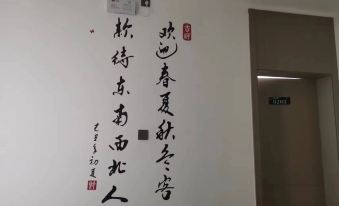 欢迎春夏秋冬客
款待东南西北人
初夏